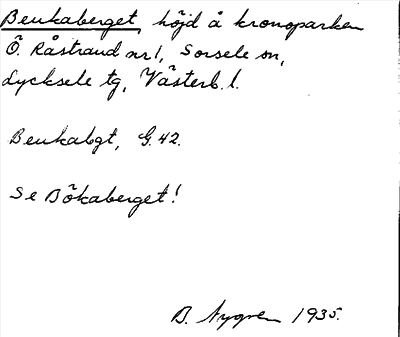 Beukaberget, höjd å kronoparken
Ö. Råstrand nr 1, Sorsele sn,
Lycksele tg, Västerb. l.
Beukabgt, G. 42.
Se Bökaberget!
B. Nygren 1935.